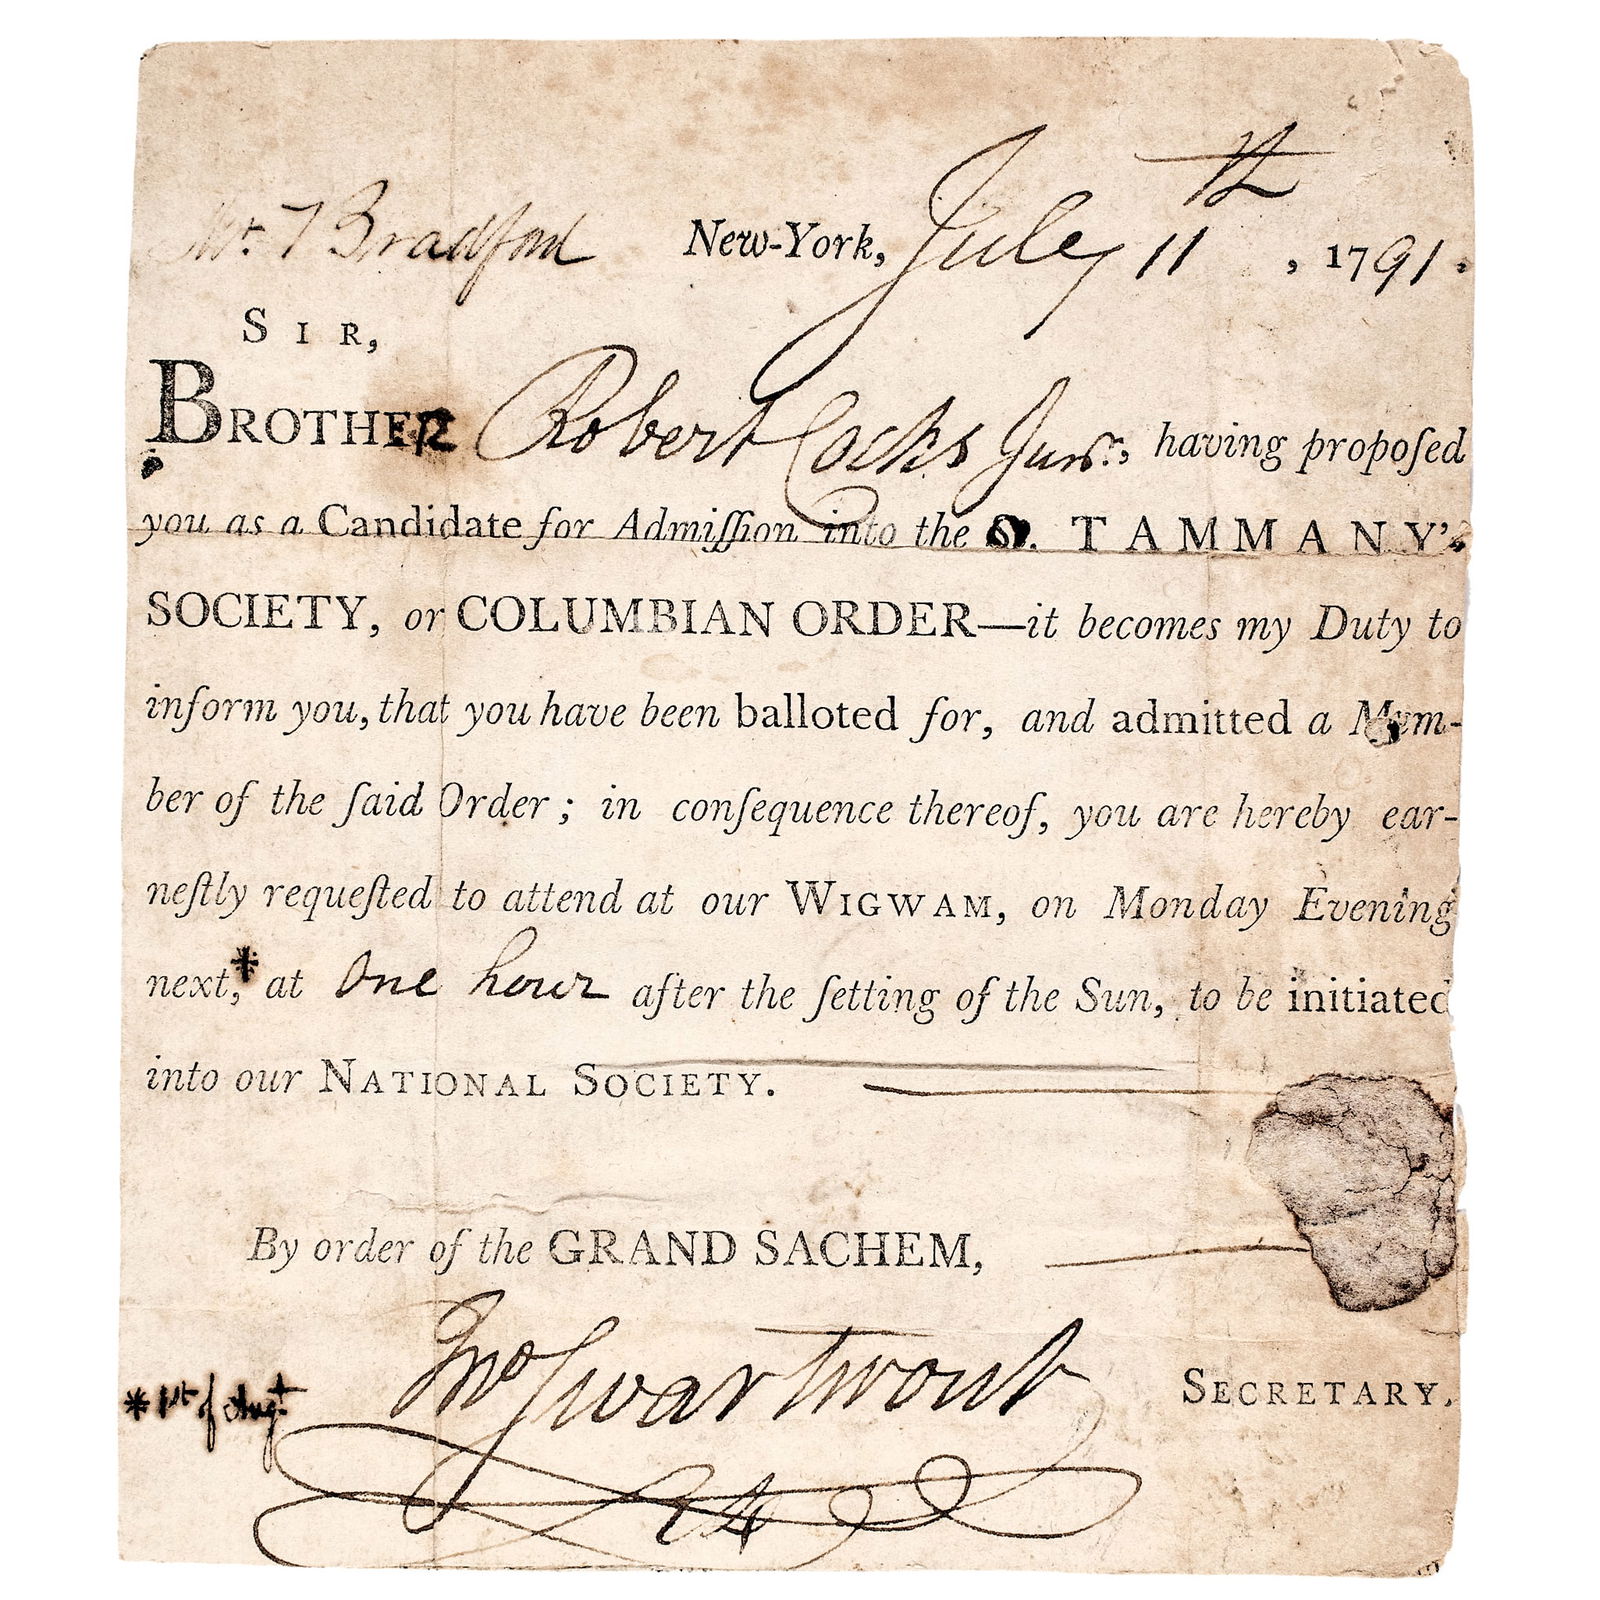 Mr. T Bradford New-York, July 11th, 1791.
SIR,
BROTHER Robert Cocks Junr., having propoſed
you as a Candidate for Admiſſion into the St. TAMMANY's
SOCIETY, or COLUMBIAN ORDER—it becomes my Duty to
inform you, that you have been balloted for, and admitted a Mem-
ber of the ſaid Order; in conſequence thereof, you are hereby ear-
neſtly requeſted to attend at our WIGWAM, on Monday Evening
next,* at One hour after the ſetting of the Sun, to be initiated
into our NATIONAL SOCIETY.
By order of the GRAND SACHEM,
Jno Swartwout SECRETARY.
* 1st of Augt